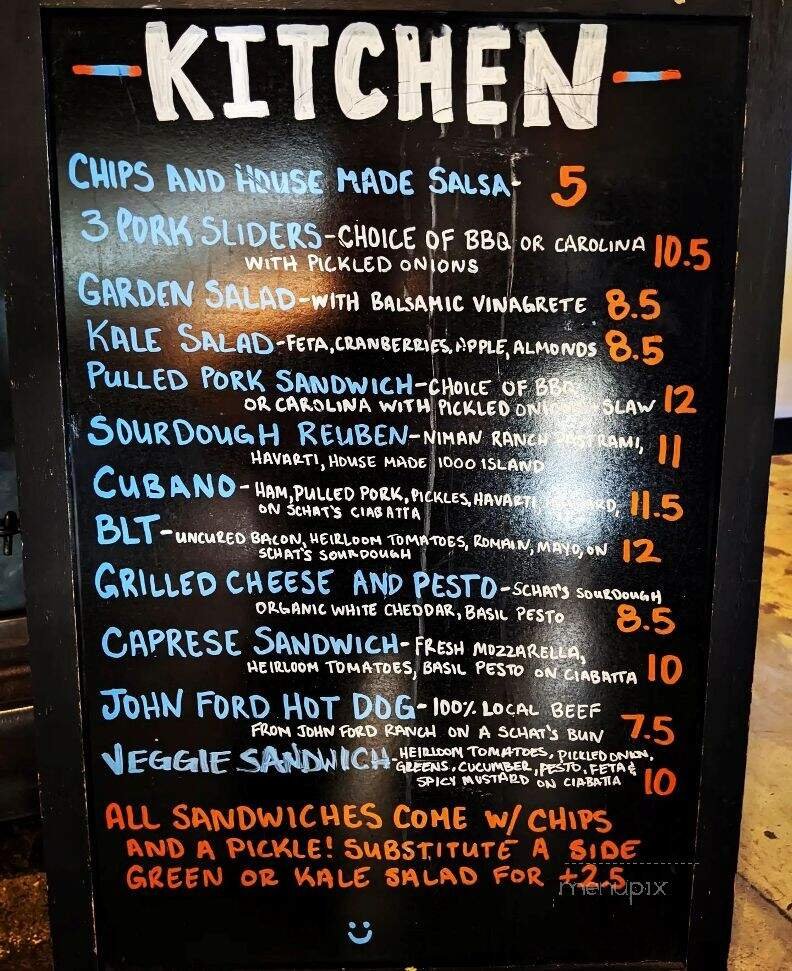 -KITCHEN-
CHIPS AND HOUSE MADE SALSA- 5
3 PORK SLIDERS-CHOICE OF BBQ OR CAROLINA 10.5
WITH PICKLED ONIONS
GARDEN SALAD-WITH BALSAMIC VINAGRETE 8.5
KALE SALAD-FETA, CRANBERRIES, APPLE, ALMONDS 8.5
PULLED PORK SANDWICH-CHOICE OF BBQ
OR CAROLINA WITH PICKLED SLAW 12
SOURDOUGH REUBEN-NIMAN RANCH PASTRAMI, 11
HAVARTI, HOUSE MADE 1000 ISLAND
CUBANO-HAM, PULLED PORK, PICKLES, HAVARTI, 11.5
ON SCHAT'S CIABATTA
BLT-UNCURED BACON, HEIRLOOM TOMATOES, ROMAIN, MAYO, ON 12
SCHAT'S SOURDOUGH
GRILLED CHEESE AND PESTO-SCHAT'S SOURDOUGH
ORGANIC WHITE CHEDDAR, BASIL PESTO 8.5
CAPRESE SANDWICH-FRESH MOZZARELLA,
HEIRLOOM TOMATOES, BASIL PESTO ON CIABATTA 10
JOHN FORD HOT DOG-100% LOCAL BEEF
FROM JOHN FORD RANCH ON A SCHAT'S BUN 7.5
VEGGIE SANDWICH-HEIRLOOM TOMATOES, PICKLED ONION,
GREENS, CUCUMBER, PESTO, FETA &
SPICY MUSTARD ON CIABATTA 10
ALL SANDWICHES COME W/ CHIPS
AND A PICKLE! SUBSTITUTE A SIDE
GREEN OR KALE SALAD FOR +2.5
menupix